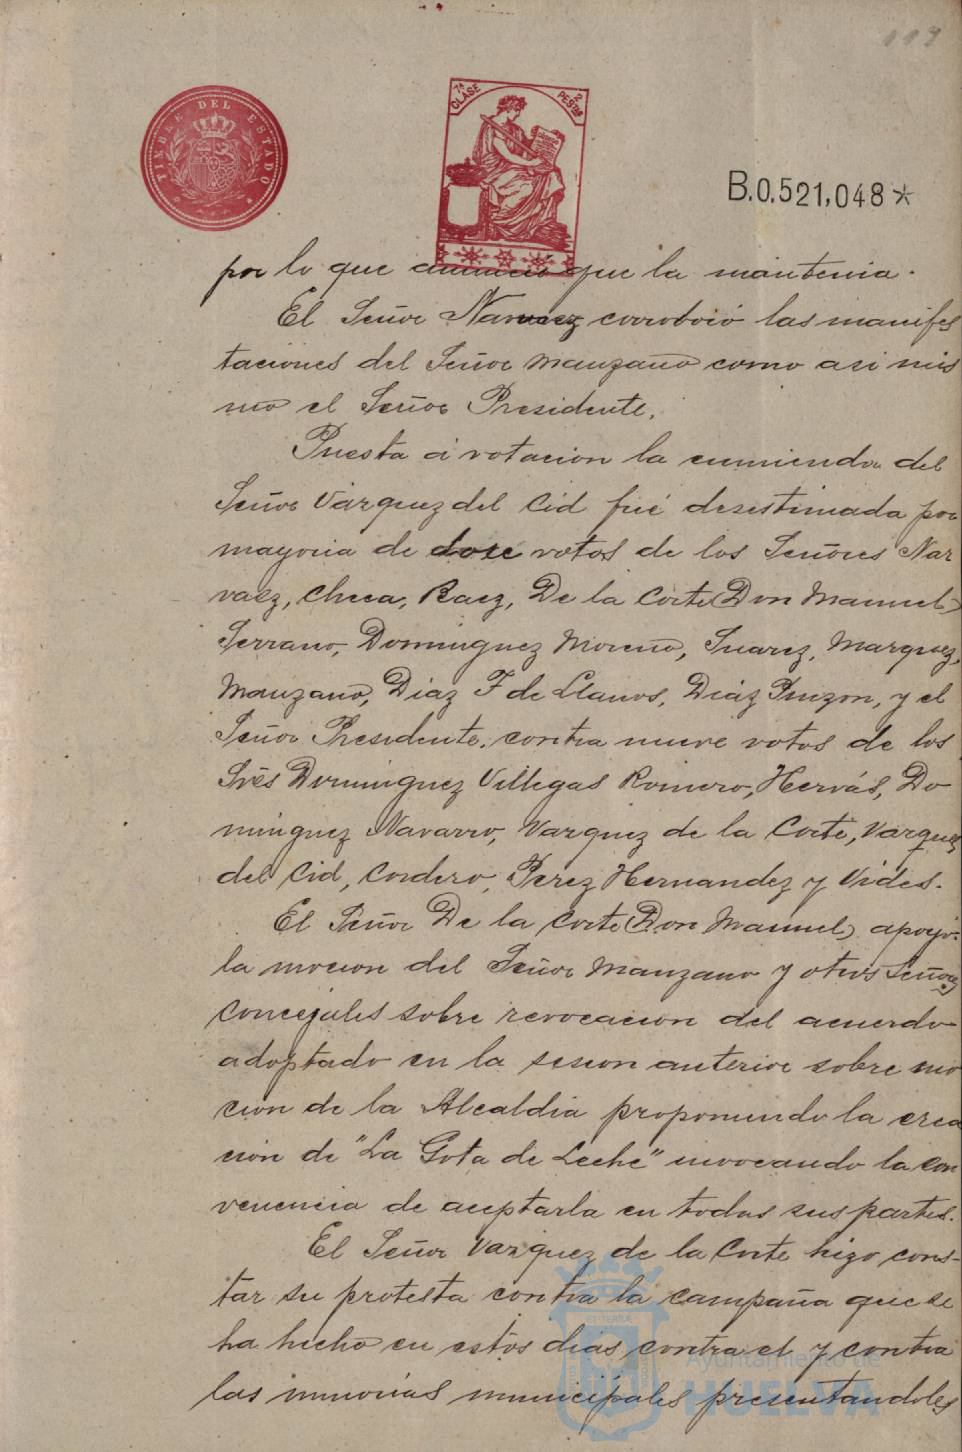 117
TIMBRE DEL ESTADO
7ª CLASE 2 PESETAS
B.0.521,048*
por lo que anunció que la mantenia.
El Señor Narvaez corroboró las manifes
taciones del Señor Manzano como asi mis
mo el Señor Presidente.
Puesta á votacion la enmienda del
Señor Vázquez del Cid fué desestimada por
mayoria de doce votos de los Señores Nar
vaez, Checa, Baez, De la Corte (Don Manuel)
Serrano, Dominguez Moreno, Suarez, Marquez,
Manzano, Diaz F de Llanos, Diáz Pinzon, y el
Señor Presidente. contra nueve votos de los
Srés Dominguez Villegas Romero, Hervás, Do
minguez Navarro, Vazquez de la Corte, Vazquez
del Cid, Cordero, Perez Hernandez y Vides.
El Señor De la Corte (Don Manuel) apoyó
la mocion del Señor Manzano y otros Señores
Concejales sobre revocacion del acuerdo
adoptado en la sesion anterior sobre mo
cion de la Alcaldia proponiendo la crea
ción de "La Gota de Leche" invocando la con
venencia de aceptarla en todas sus partes.
El Señor Vazquez de la Corte hizo cons-
tar su protesta contra la campaña que se
ha hecho en estos dias contra el y contra
las minorias municipales presentandoles
Ayuntamiento de
HUELVA